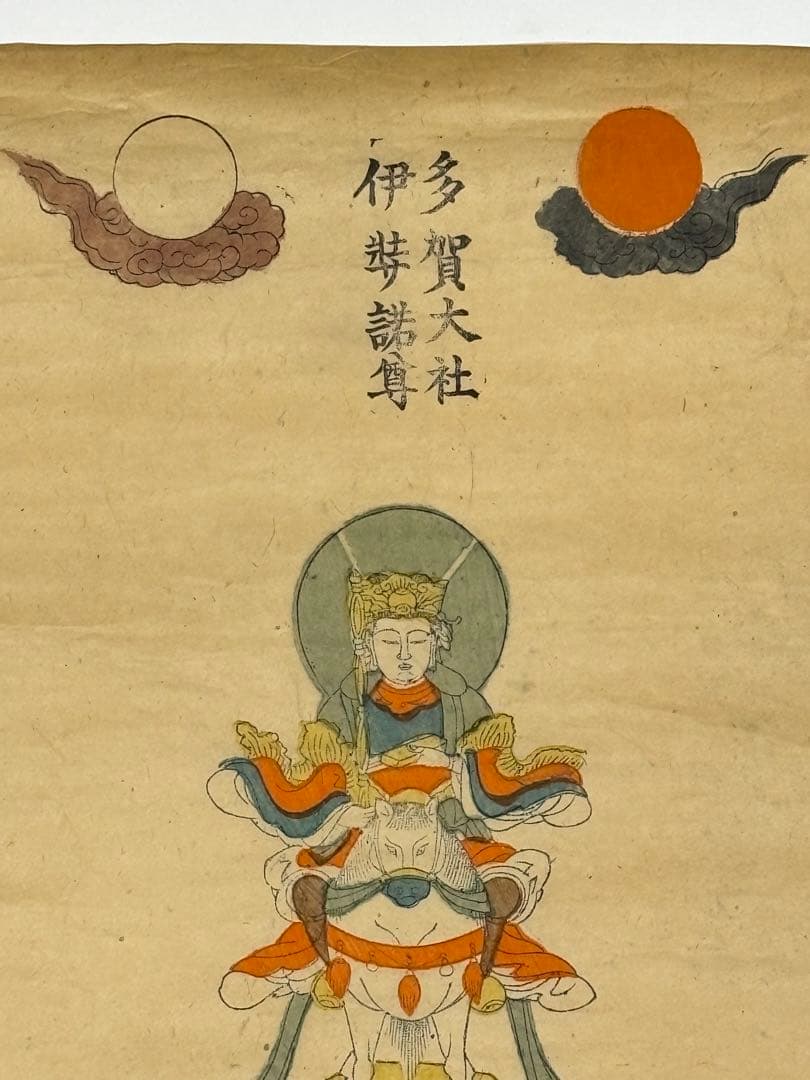 多賀大社
伊弉諾尊